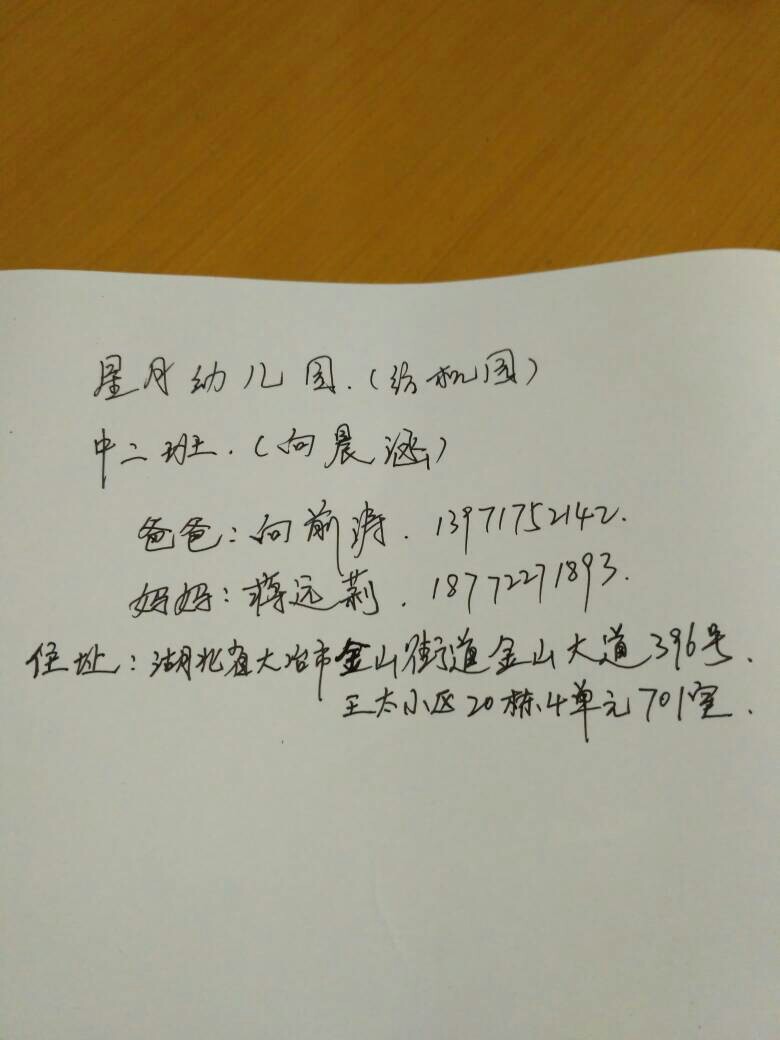 星月幼儿园.(纺机园)
中二班.(向晨涵)
爸爸:向前涛. 13971752142.
妈妈:蒋远莉. 18772271893.
住址:湖北省大冶市金山街道金山大道396号.
王太小区20栋4单元701室.